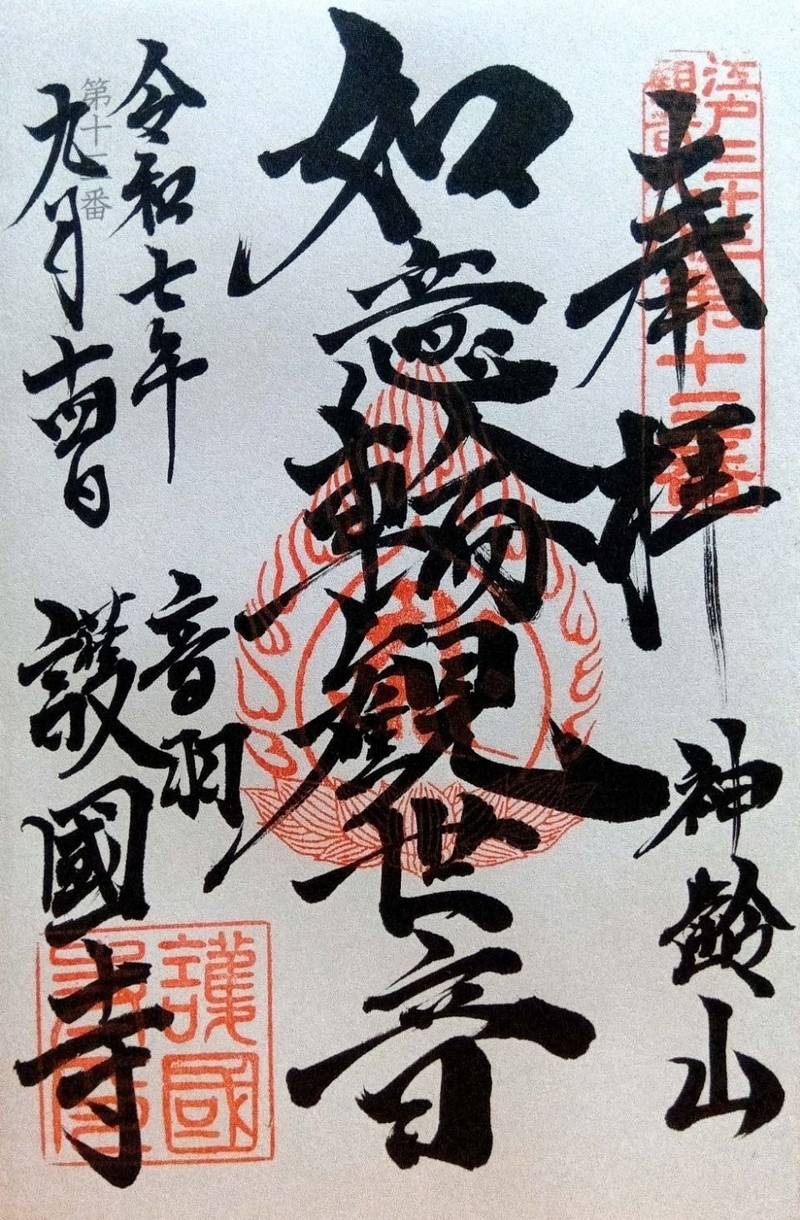 江戸三十三
観音
第十三番
奉拝
神齢山
如意輪觀世音
令和七年
九月十四日
第十
番
音羽
護國寺
護國